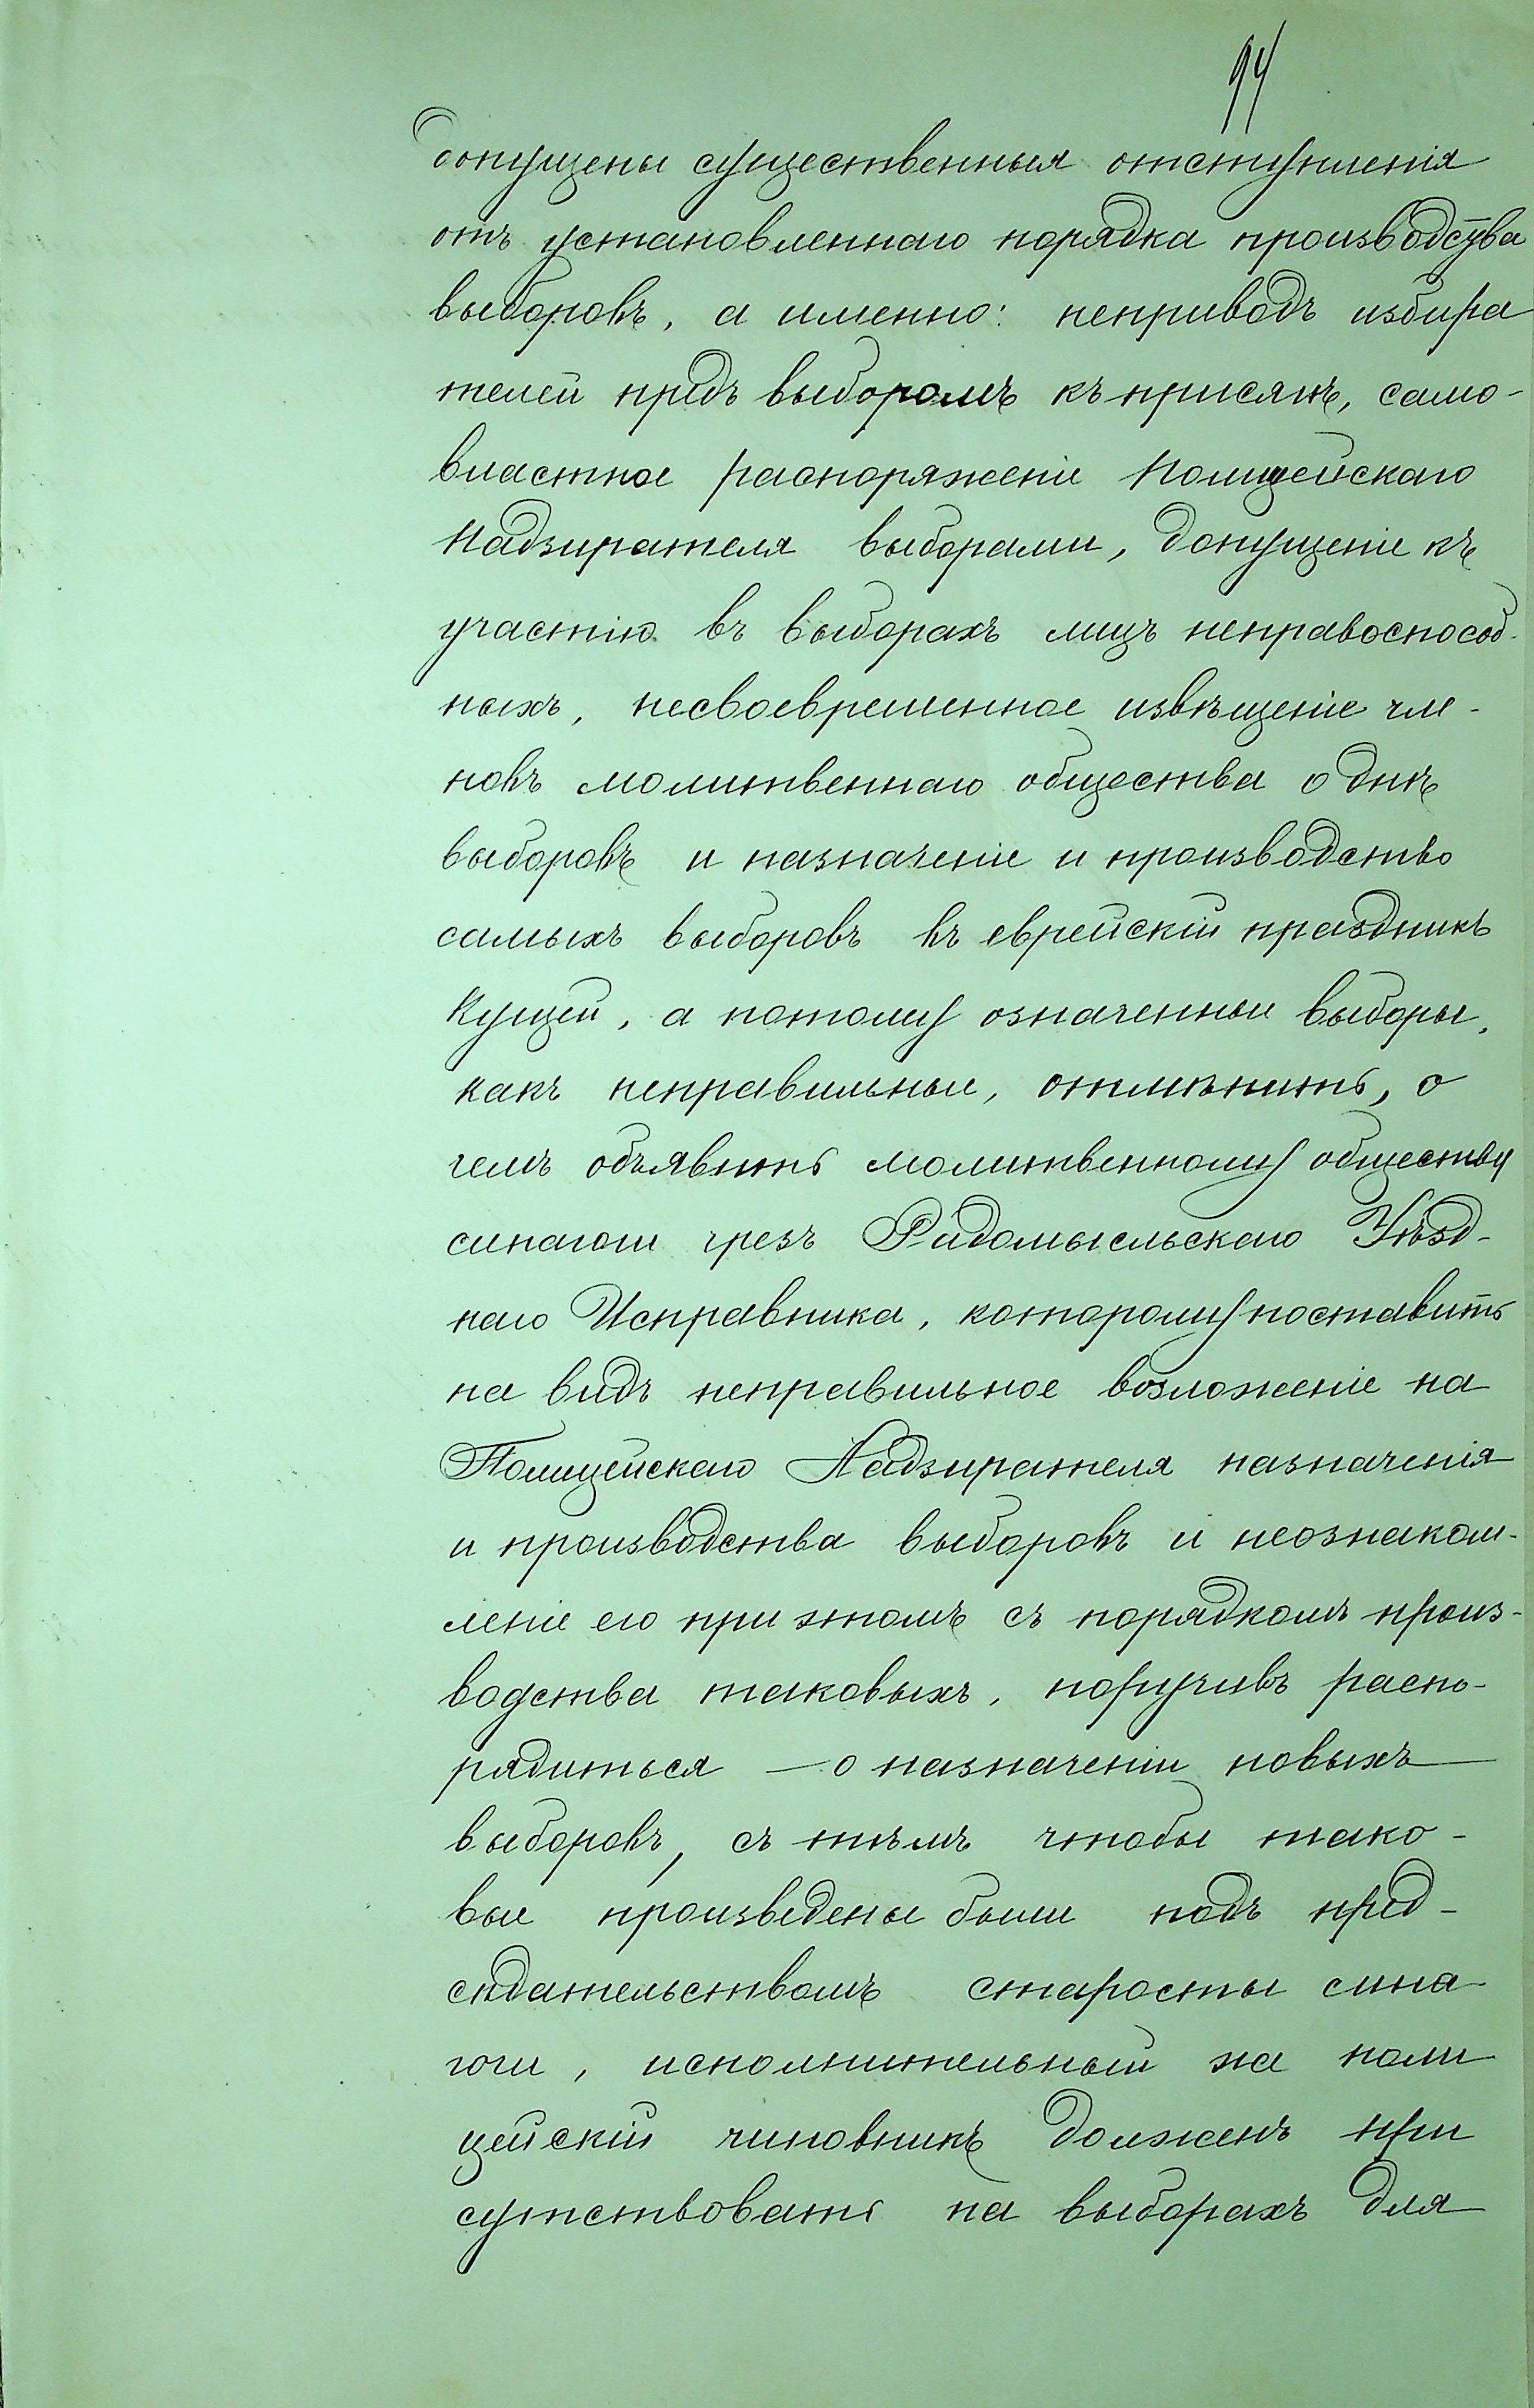 94
допущены существенныя отступленія
отъ установленнаго порядка производства
выборовъ, а именно: неприводъ избира
телей предъ выборомъ къ присягѣ, само-
властное распоряженіе Полицейскаго
Надзирателя выборами, допущеніе къ
участію въ выборахъ лицъ неправоспособ-
ныхъ, несвоевременное извѣщеніе чле-
новъ молитвеннаго общества о днѣ
выборовъ и назначеніе и производство
самыхъ выборовъ въ еврейскій праздникъ
Кущей, а потому означенные выборы,
какъ неправильные, отмѣнить, о
чемъ объявить молитвенному обществу
синагоги чрезъ Радомысльскаго Уѣзд-
наго Исправника, которому поставить
на видъ неправильное возложеніе на
Полицейскаго Надзирателя назначенія
и производства выборовъ и неознаком-
леніе его при этомъ съ порядкомъ произ-
водства таковыхъ, поручивъ распо-
рядиться — о назначеніи новыхъ
выборовъ, съ тѣмъ чтобы тако-
вые произведены были подъ пред-
сѣдательствомъ старосты сина
гоги, исполнительный же поли
цейскій чиновникъ долженъ при
сутствовать на выборахъ для